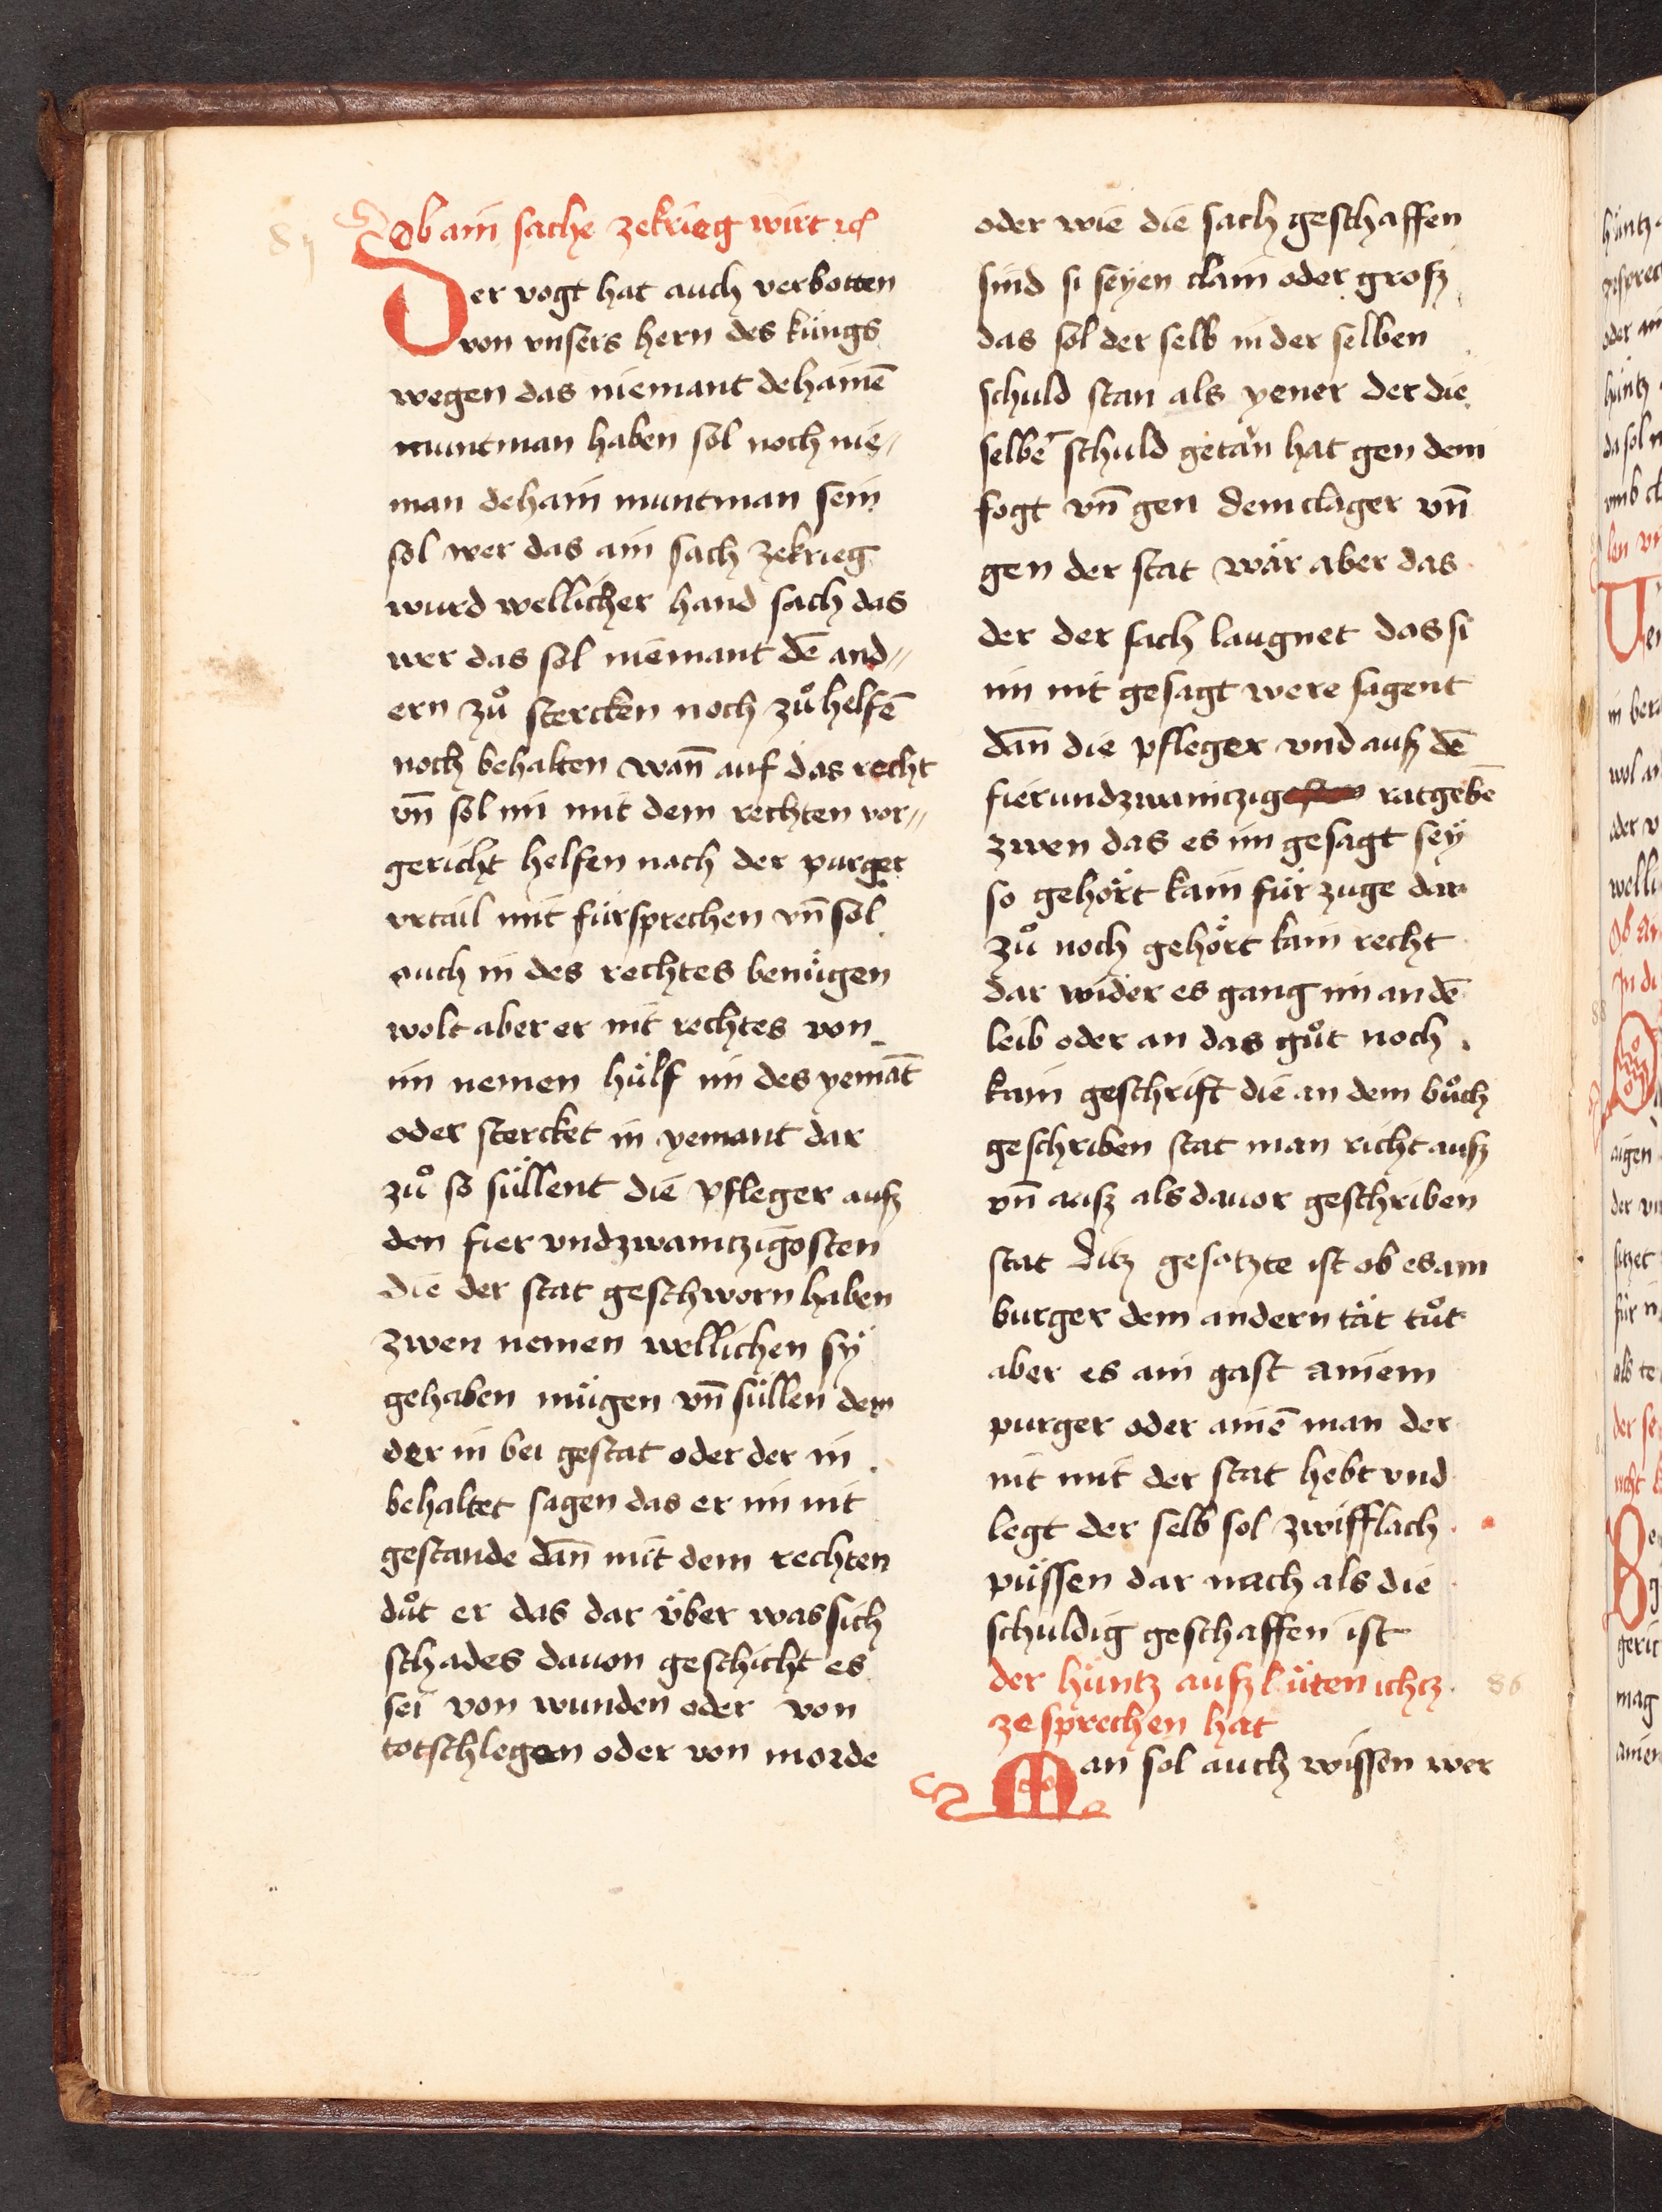 Ob ain sache zekrieg wirt ꝛc
Der vogt hat auch verbotten
von vnsers hern des küngs
wegen das niemant dehainē
muntman haben sol noch nie//
man dehain muntman sein
sol wer das ain sach zekrieg
wurd wellicher hand sach das
wer das sol niemant dē and//
ern zuͦ stercken noch zuͦ helfē
noch behalten wan̄ auf das recht
vn̄ sol im mit dem rechten vor//
gericht helfen nach der purger
vrtail mit fürsprechen vn̄ sol
auch in des rechtes benügen
wolt aber er nit rechtes von
im nemen hülf im des yemāt
oder stercket in yemant dar
zuͦ so süllent die pfleger auſz
den fier vndzwaintzigosten
die der stat geschworn haben
zwen nemen wellichen sÿ
gehaben mügen vn̄ süllen dem
der in bei gestat oder der in
behaltet sagen das er im nit
gestande dan̄ mit dem rechten
duͦt er das dar über was sich
schades dauon geschicht es
sei von wunden oder von
totschlegen oder von morde
oder wie die sach geschaffen
sind si seyen clain oder groſz
das sol der selb in der selben
schuld stan als yener der die
selbē schuld getän hat gen dem
fogt vn̄ gen dem clager vn̄
gen der stat wär aber das
der der sach laugnet das si
im nit gesagt were sagent
dan̄ die pfleger vnd auſz dē
fierundzwaintzig ratgebē
zwen das es im gesagt seÿ
so gehört kain für zuge dar
zuͦ noch gehört kain recht
dar wider es gang im an dē
leib oder an das guͦt noch
kain geschrift die an dem buͦch
geschriben stat man richt auſz
vn̄ auſz als dauor geschriben
stat Ditz gesotzte ist ob es ain
burger dem andern tät tuͦt
aber es ain gast ainem
purger oder ainē man der
nit mit der stat hebt vnd
legt der selb sol zwifflach
püssen dar nach als die
schuldig geschaffen ist
der hüntz auſz lüten ichtz
ze sprechen hat
86
Man sol auch wissen wer